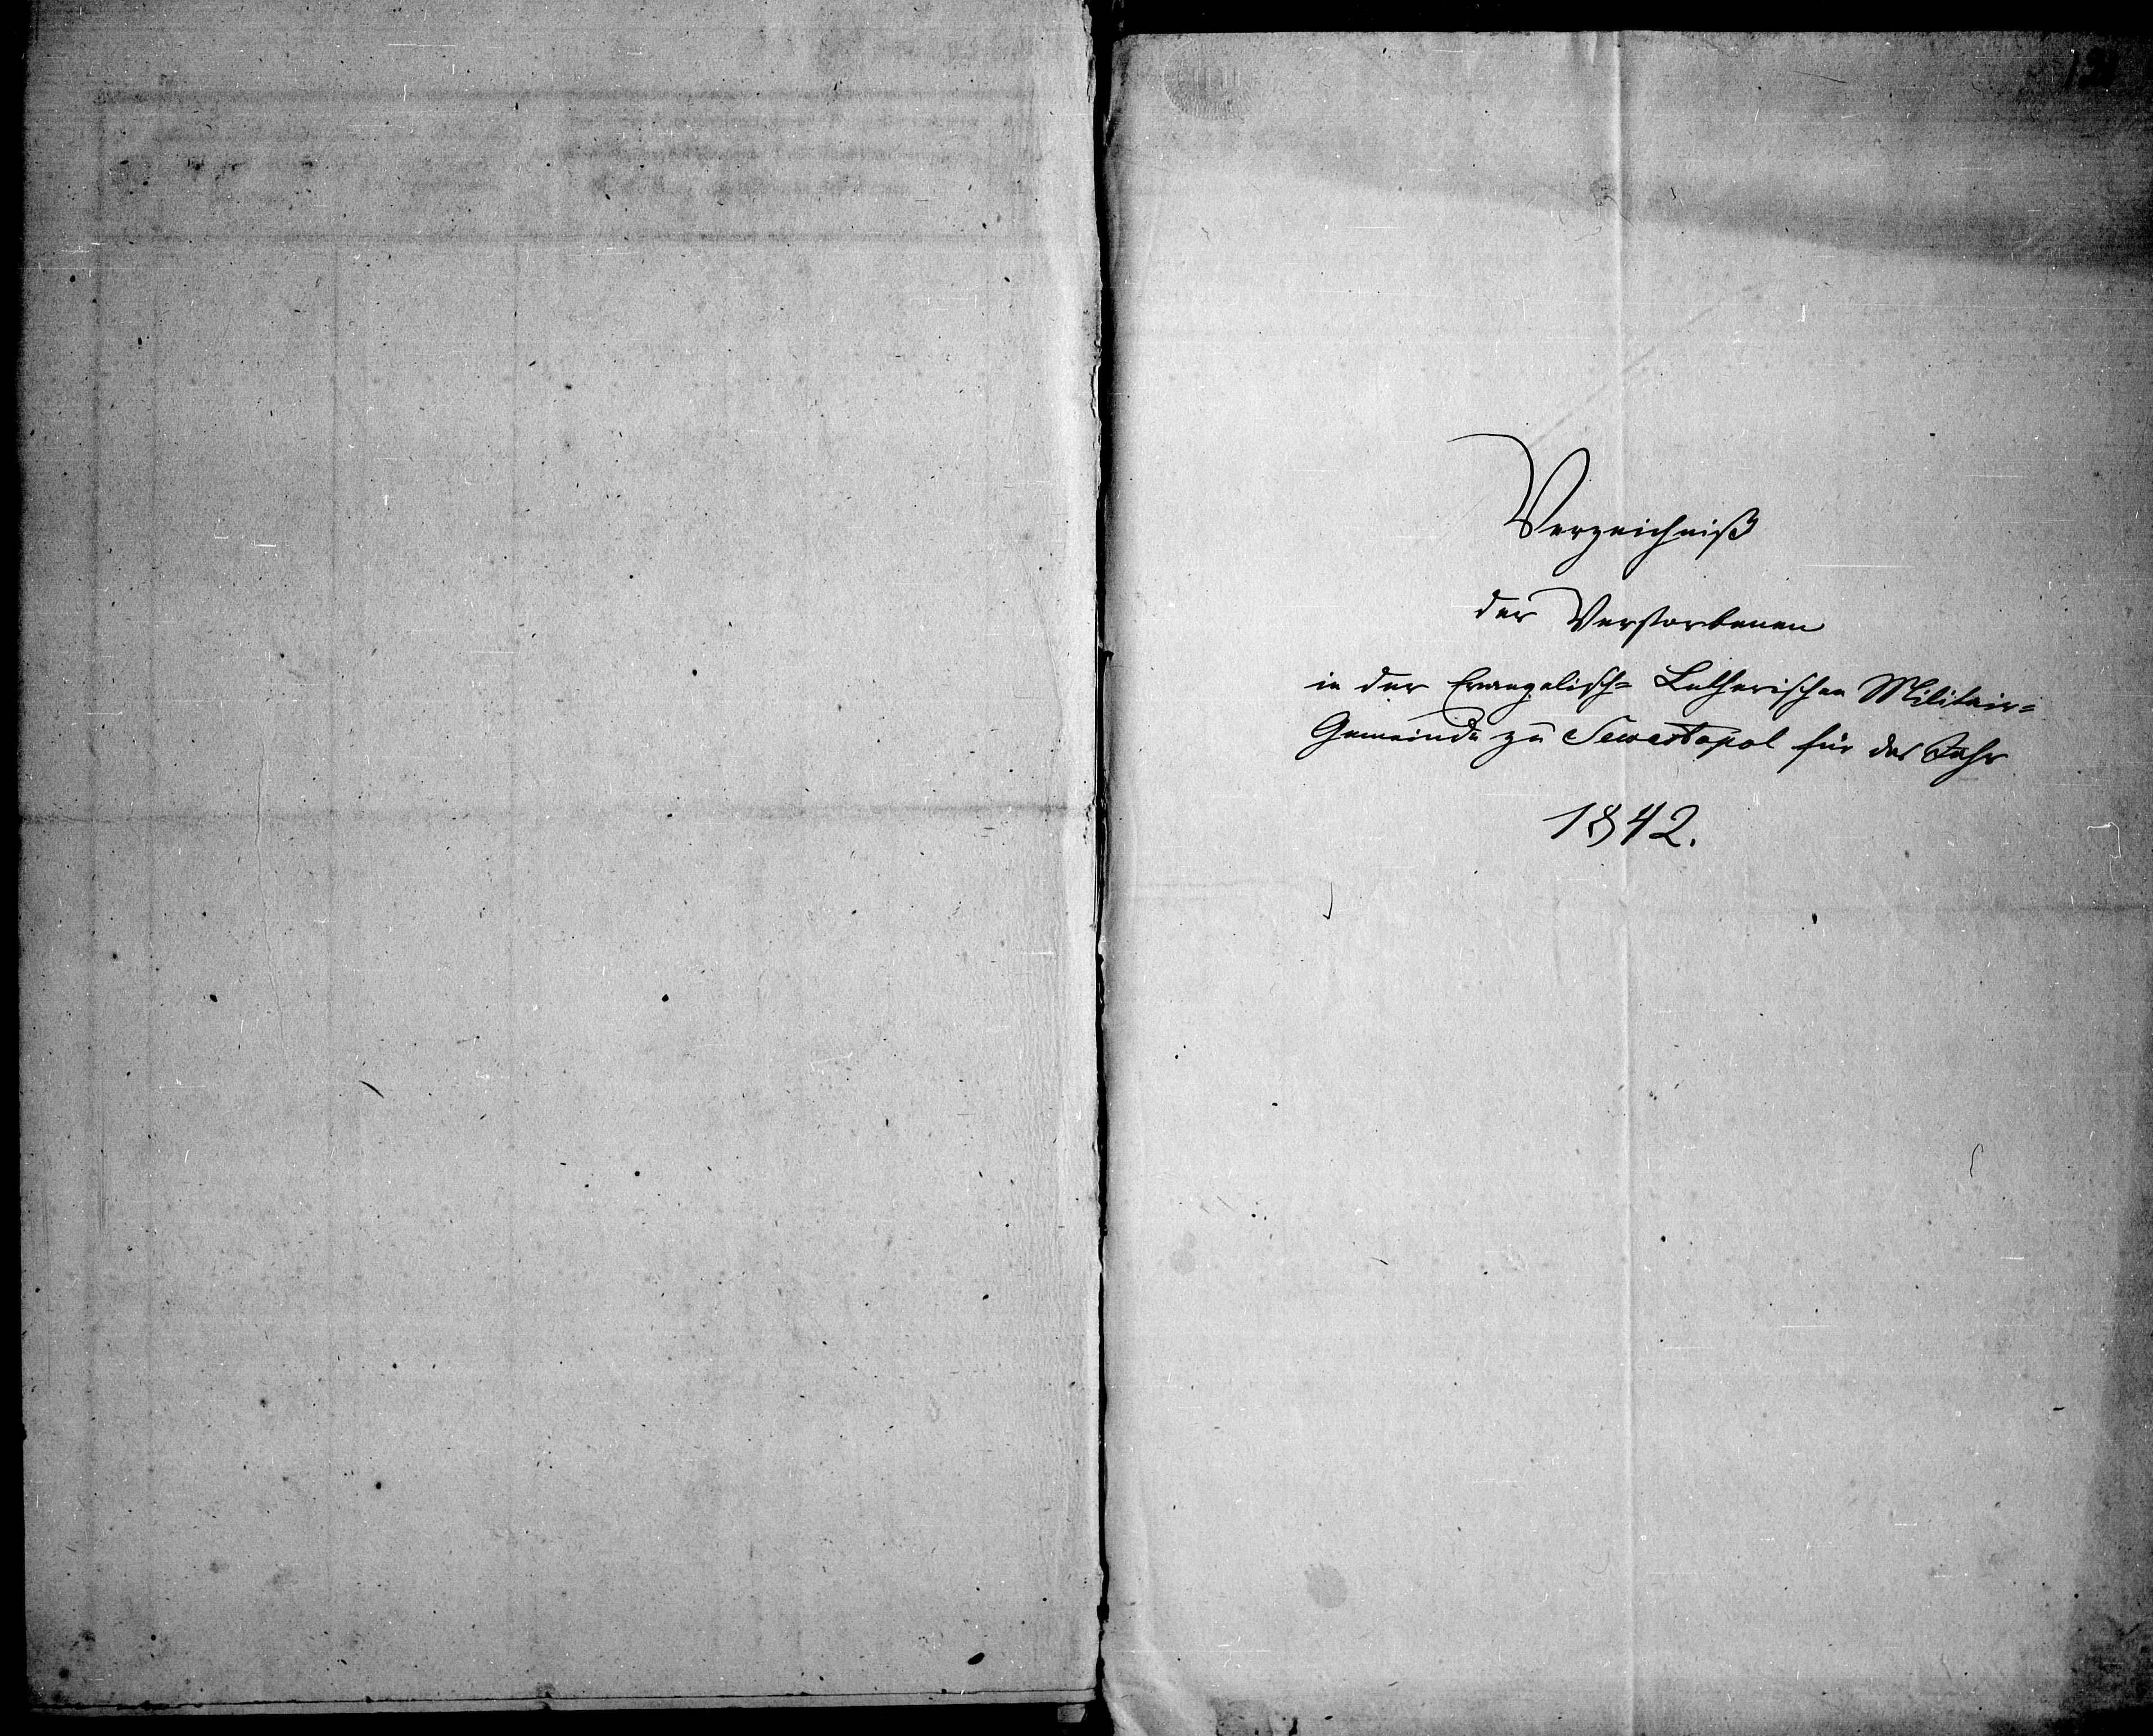 Verzeichniß
der Verstorbenen
in der Evangelisch= Lutherischen Militair=
Gemeinde zu Sewastopol für das Jahr
1842.